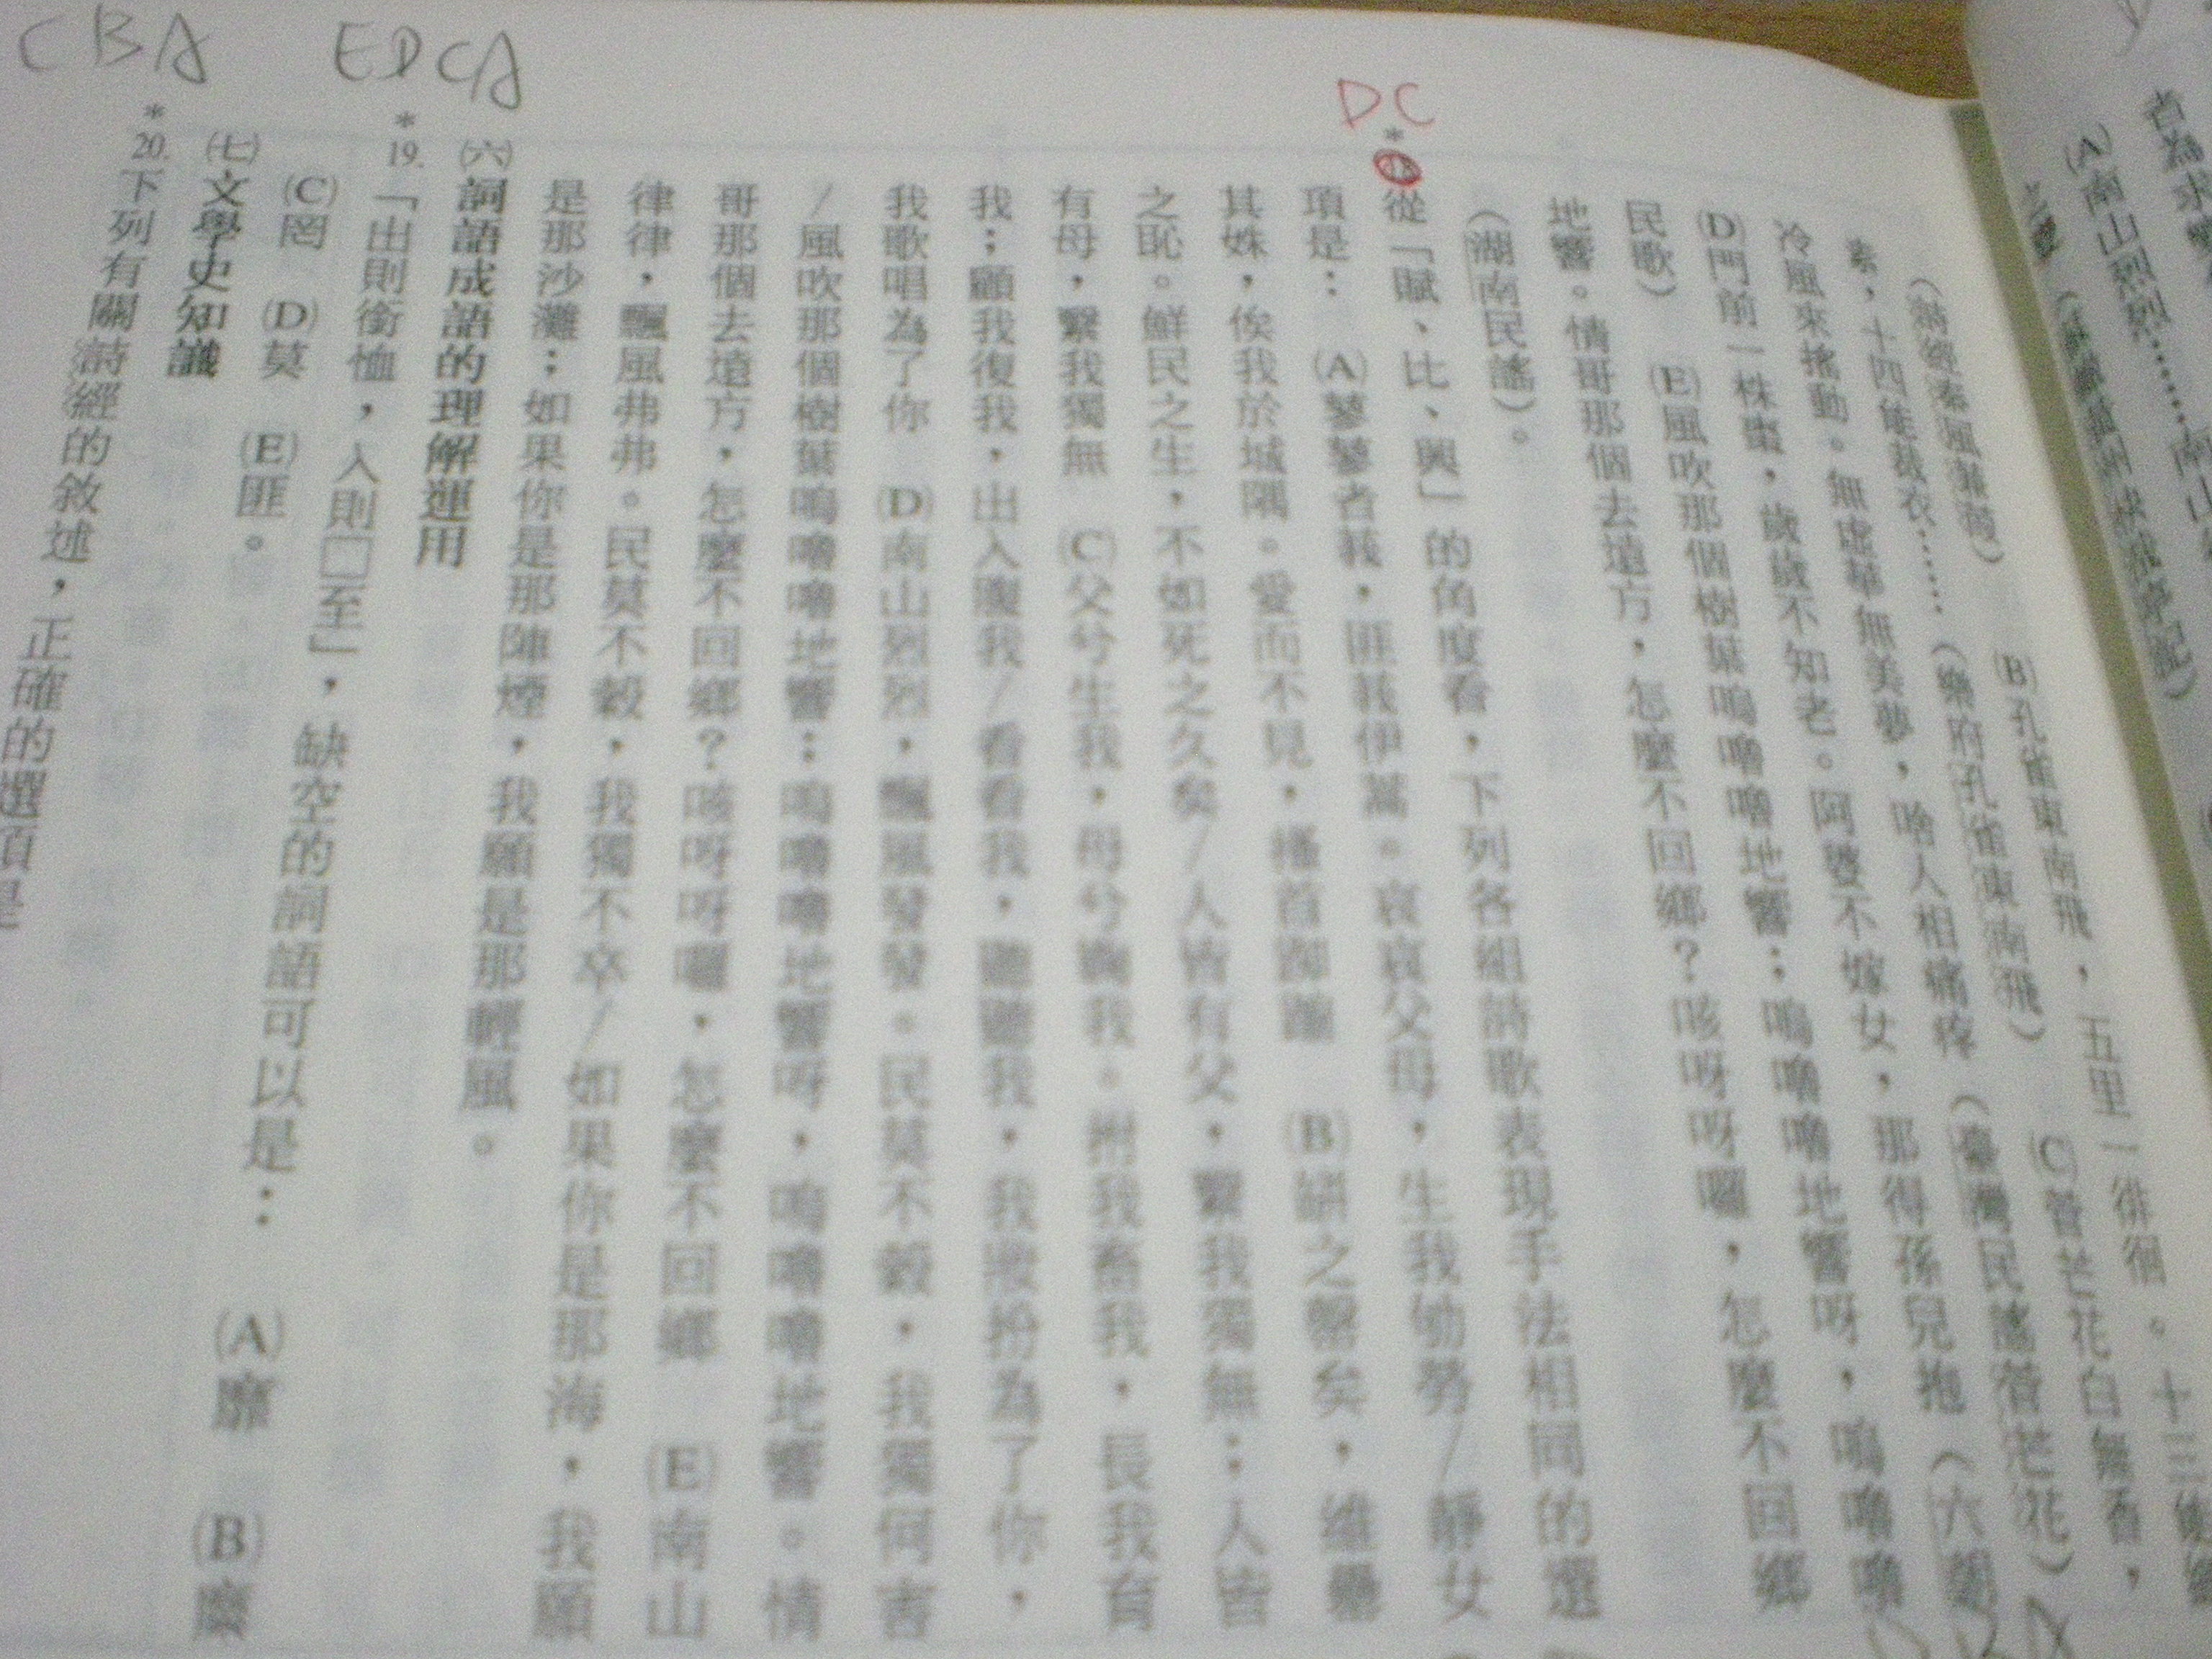 (A)南山烈烈……南山
(B)孔雀東南飛，五里一徘徊。十三
(詩經秦風蒹葭)
(C)菅芒花白無香，
素，十四能裁衣……(樂府孔雀東南飛)
冷風來搖動。無虛華無美夢，啥人相痛疼(臺灣民謠菅芒花)
(D)門前一株棗，歲歲不知老。阿婆不嫁女，那得孫兒抱(六朝
民歌) (E)風吹那個樹葉嗚嚕嚕地響；嗚嚕嚕地響呀，嗚嚕嚕
地響。情哥那個去遠方，怎麼不回鄉？咳呀呀囉，怎麼不回鄉
(湖南民謠)。
DC
*
從「賦、比、興」的角度看，下列各組詩歌表現手法相同的選
項是： (A)蓼蓼者莪，匪莪伊蒿。哀哀父母，生我劬勞/靜女
其姝，俟我於城隅。愛而不見，搔首踟躕 (B)缾之罄矣，維罍
之恥。鮮民之生，不如死之久矣/人皆有父，繄我獨無；人皆
有母，繄我獨無 (C)父兮生我，母兮鞠我。拊我畜我，長我育
我；顧我復我，出入腹我/看看我，聽聽我，我妝扮為了你，
我歌唱為了你 (D)南山烈烈，飄風發發。民莫不穀，我獨何害
/風吹那個樹葉嗚嚕嚕地響；嗚嚕嚕地響呀，嗚嚕嚕地響。情
哥那個去遠方，怎麼不回鄉？咳呀呀囉，怎麼不回鄉 (E)南山
律律，飄風弗弗。民莫不穀，我獨不卒/如果你是那海，我願
是那沙灘；如果你是那陣煙，我願是那輕風。
(六)詞語成語的理解運用
EDCA
*19.「出則銜恤，入則□至」，缺空的詞語可以是： (A)靡 (B)糜
(C)罔 (D)莫 (E)匪。
(七)文學史知識
CBA
*20.下列有關詩經的敘述，正確的選項是